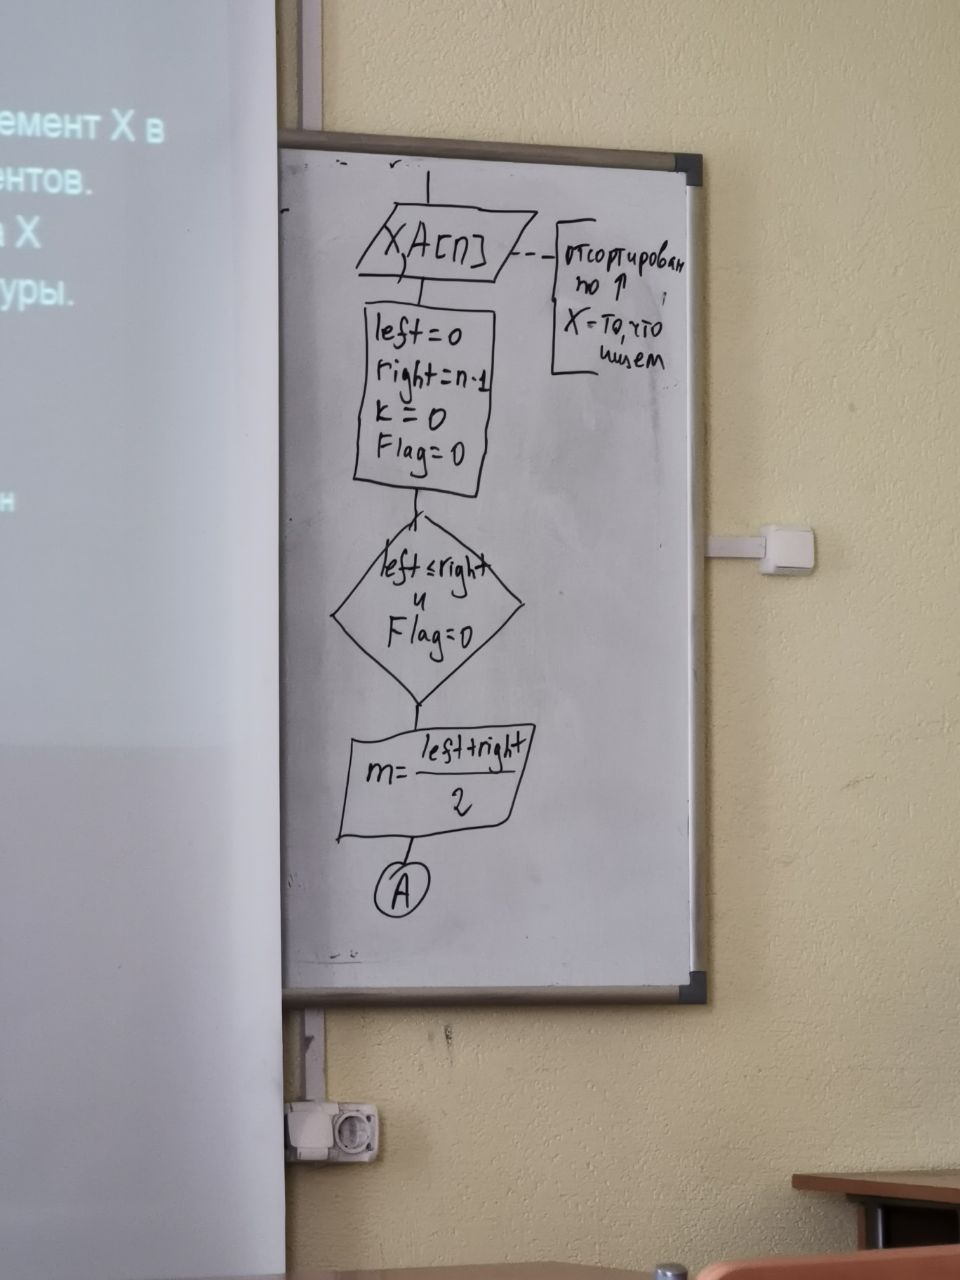 емент X в
ентов.
а X
уры.
н
X, A[n]
отсортирован
по ↑
X - то, что
ищем
left = 0
right = n-1
k = 0
Flag = 0
left ≤ right
и
Flag = 0
m = left + right
2
A